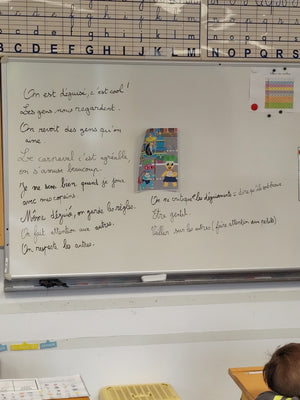 A B C D E F G H I J K L M N O P Q R S
On est déguisé, c'est cool !
Les gens nous regardent.
On revoit des gens qu'on
aime.
Le carnaval c'est agréable,
on s'amuse beaucoup.
Je me sens bien quand je joue
avec mes copains.
Même déguisé, on garde les règles.
On fait attention aux autres.
On respecte les autres.
On ne critique pas les déguisements : dire qu'ils sont beaux
Être gentil.
Veiller sur les autres (faire attention aux petits)